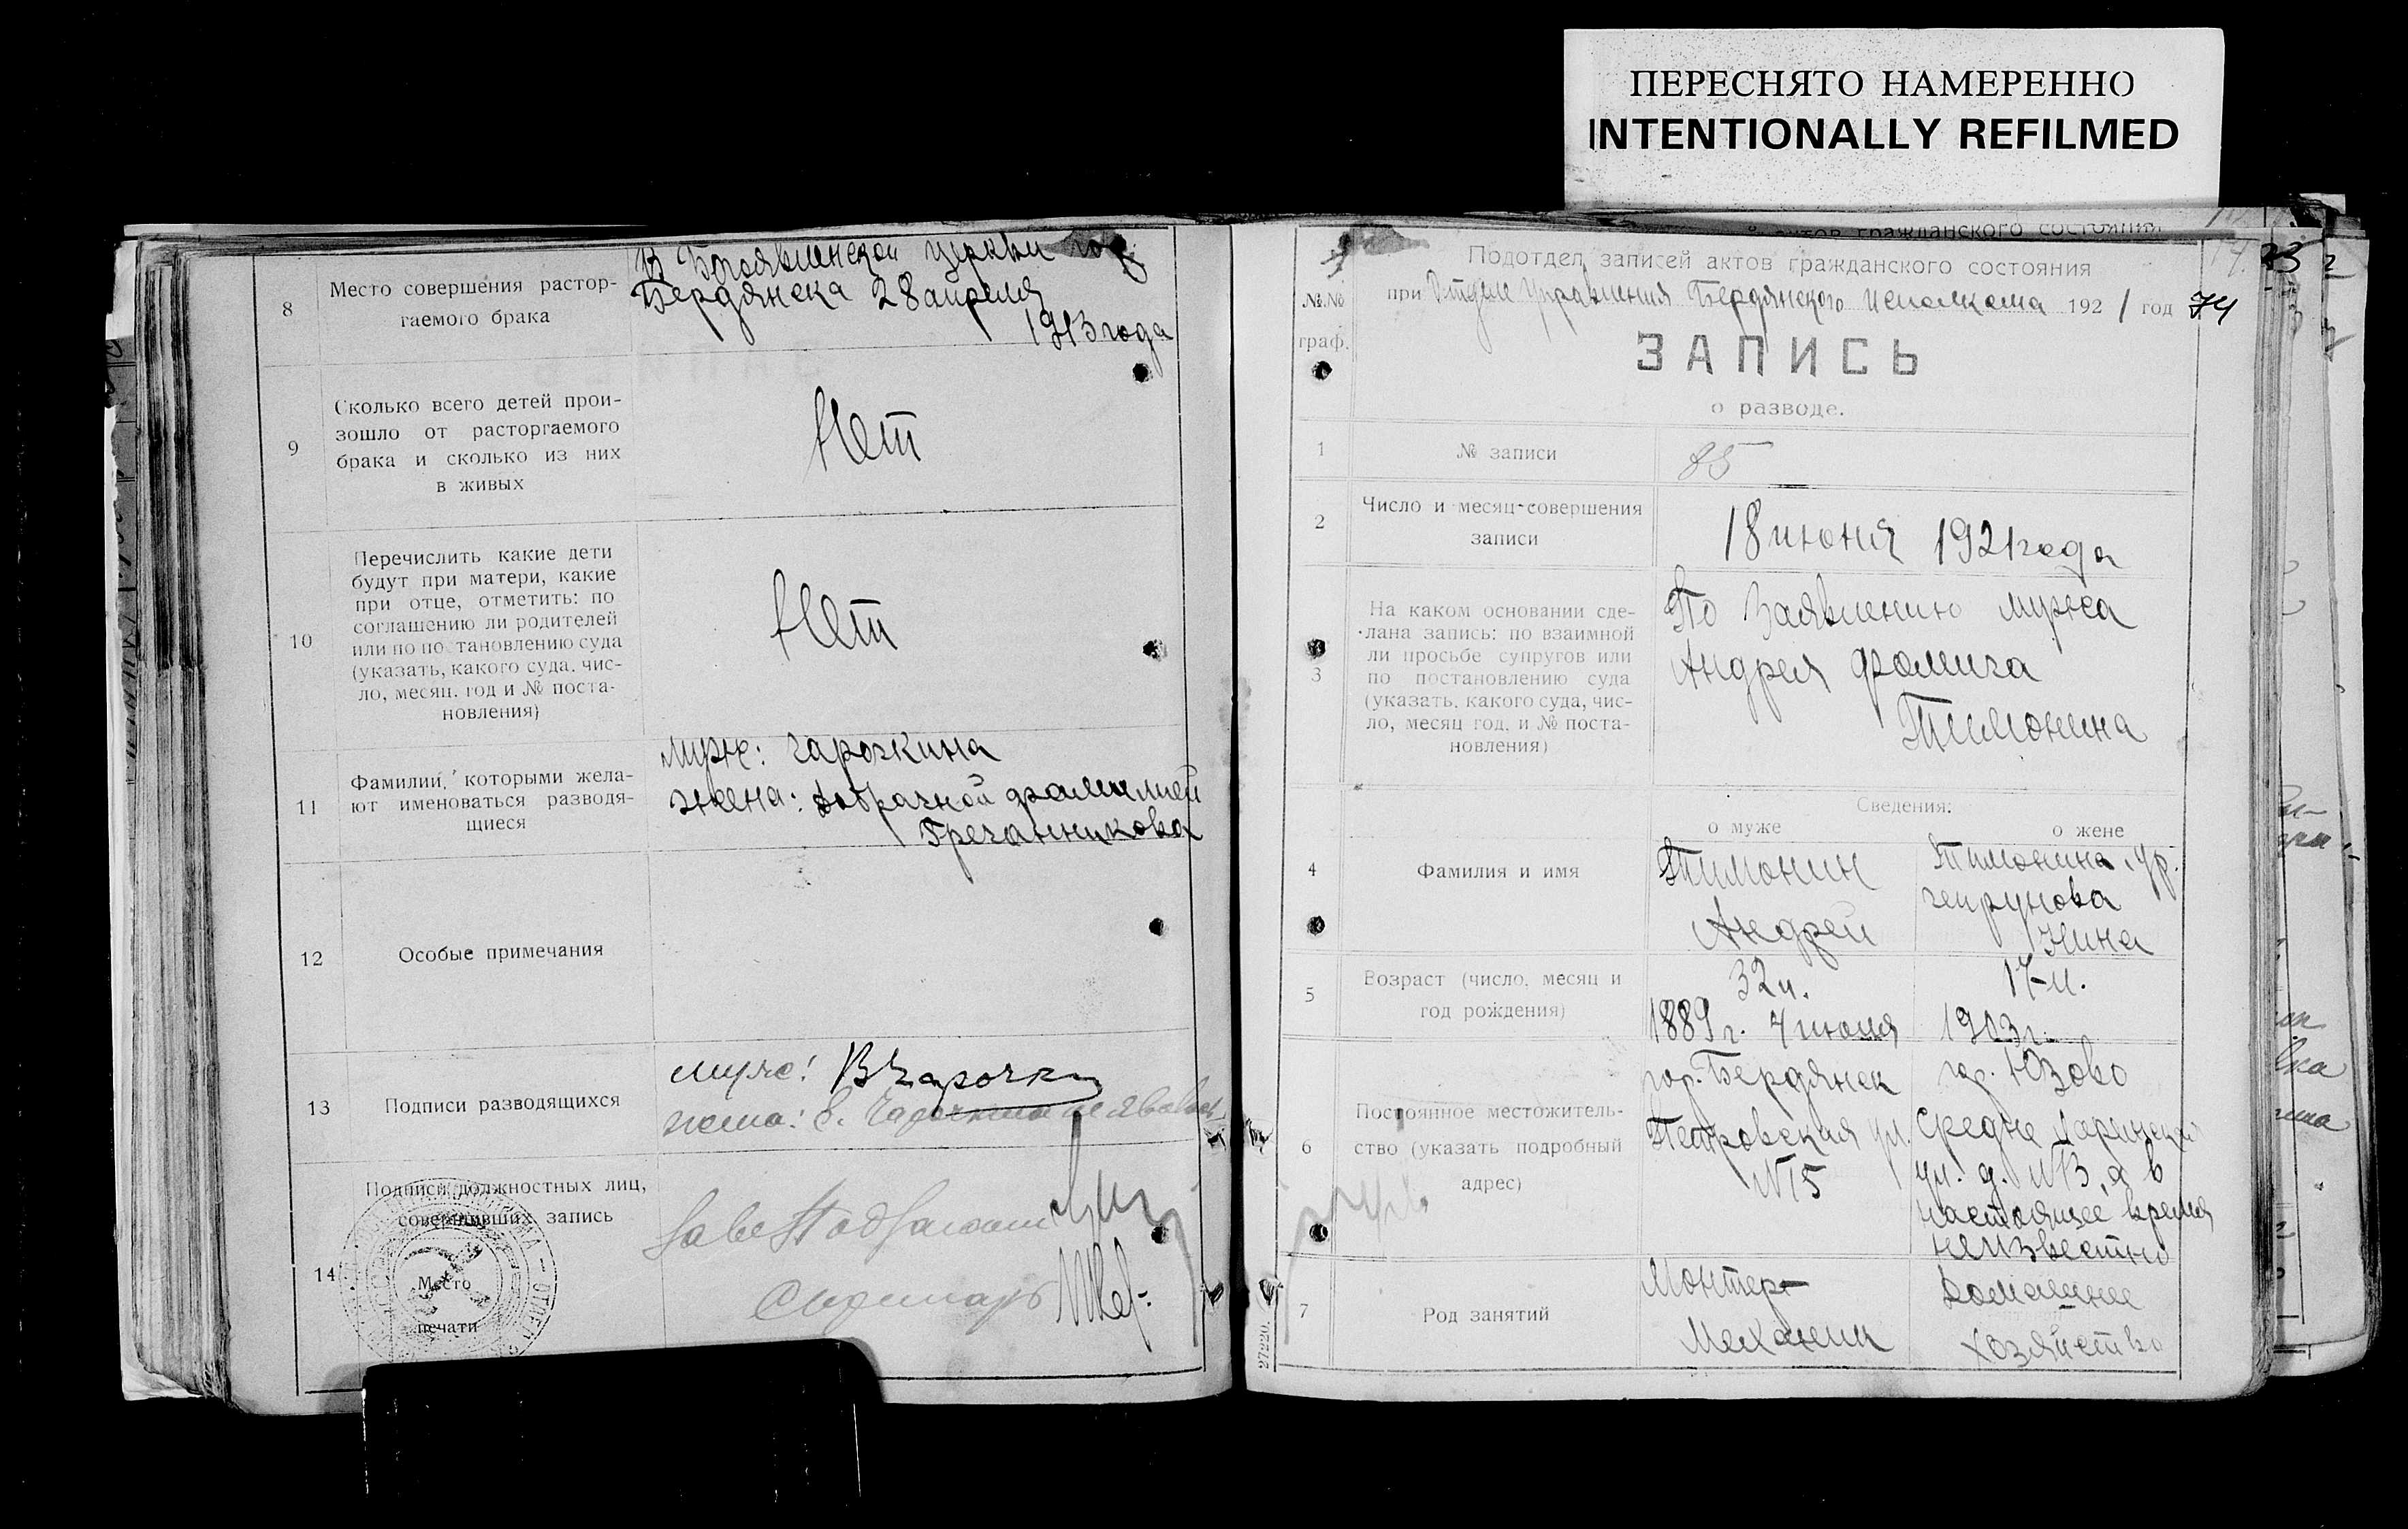 ПЕРЕСНЯТО НАМЕРЕННО
INTENTIONALLY REFILMED
8
Место совершения растор-
гаемого брака
В Богоявленской церкви гор.
Бердянска 28 апреля
1913 года
9
Сколько всего детей прои-
зошло от расторгаемого
брака и сколько из них
в живых
Нет
10
Перечислить какие дети
будут при матери, какие
при отце, отметить: по
соглашению ли родителей
или по по тановлению суда
(указать, какого суда, чис-
ло, месяц, год и № поста-
новления)
Нет
11
Фамилии, которыми жела-
ют именоваться разводя-
щиеся
муж: Чарочкина
жена: добрачной фамилией
Гречанникова
12
Особые примечания
13
Подписи разводящихся
муж: В Чарочкин
жена: Е. Чарочкина не явилась
14
Подписи должностных лиц,
совершивших запись
Место
печати
Зав
актов гражданского состояния
Подотдел записей актов гражданского состояния
№№
граф.
при Отделе Управления Бердянского Исполкома 1921 год 74
ЗАПИСЬ
о разводе.
1
№ записи
85
2
Число и месяц совершения
записи
18 июня 1921 года
3
На каком основании сде-
лана запись: по взаимной
ли просьбе супругов или
по постановлению суда
(указать, какого суда, чис-
ло, месяц год, и № поста-
новления)
По Заявлению мужа
Андрея Фомича
Тимонина
Сведения:
о муже
о жене
4
Фамилия и имя
Тимонин
Андрей
Тимонина, ур.
Нина
5
Возраст (число, месяц и
год рождения)
32 л.
1889 г. 4 июля
17 л.
1903 г.
6
Постоянное местожитель-
ство (указать подробный
адрес)
гор. Бердянск
Петровская ул.
№ 15
гор. Юзово
Средне
ул. д. №3, а в
настоящее время
неизвестно
7
Род занятий
Монтер-
Механик
Домашнее
хозяйство
27220.